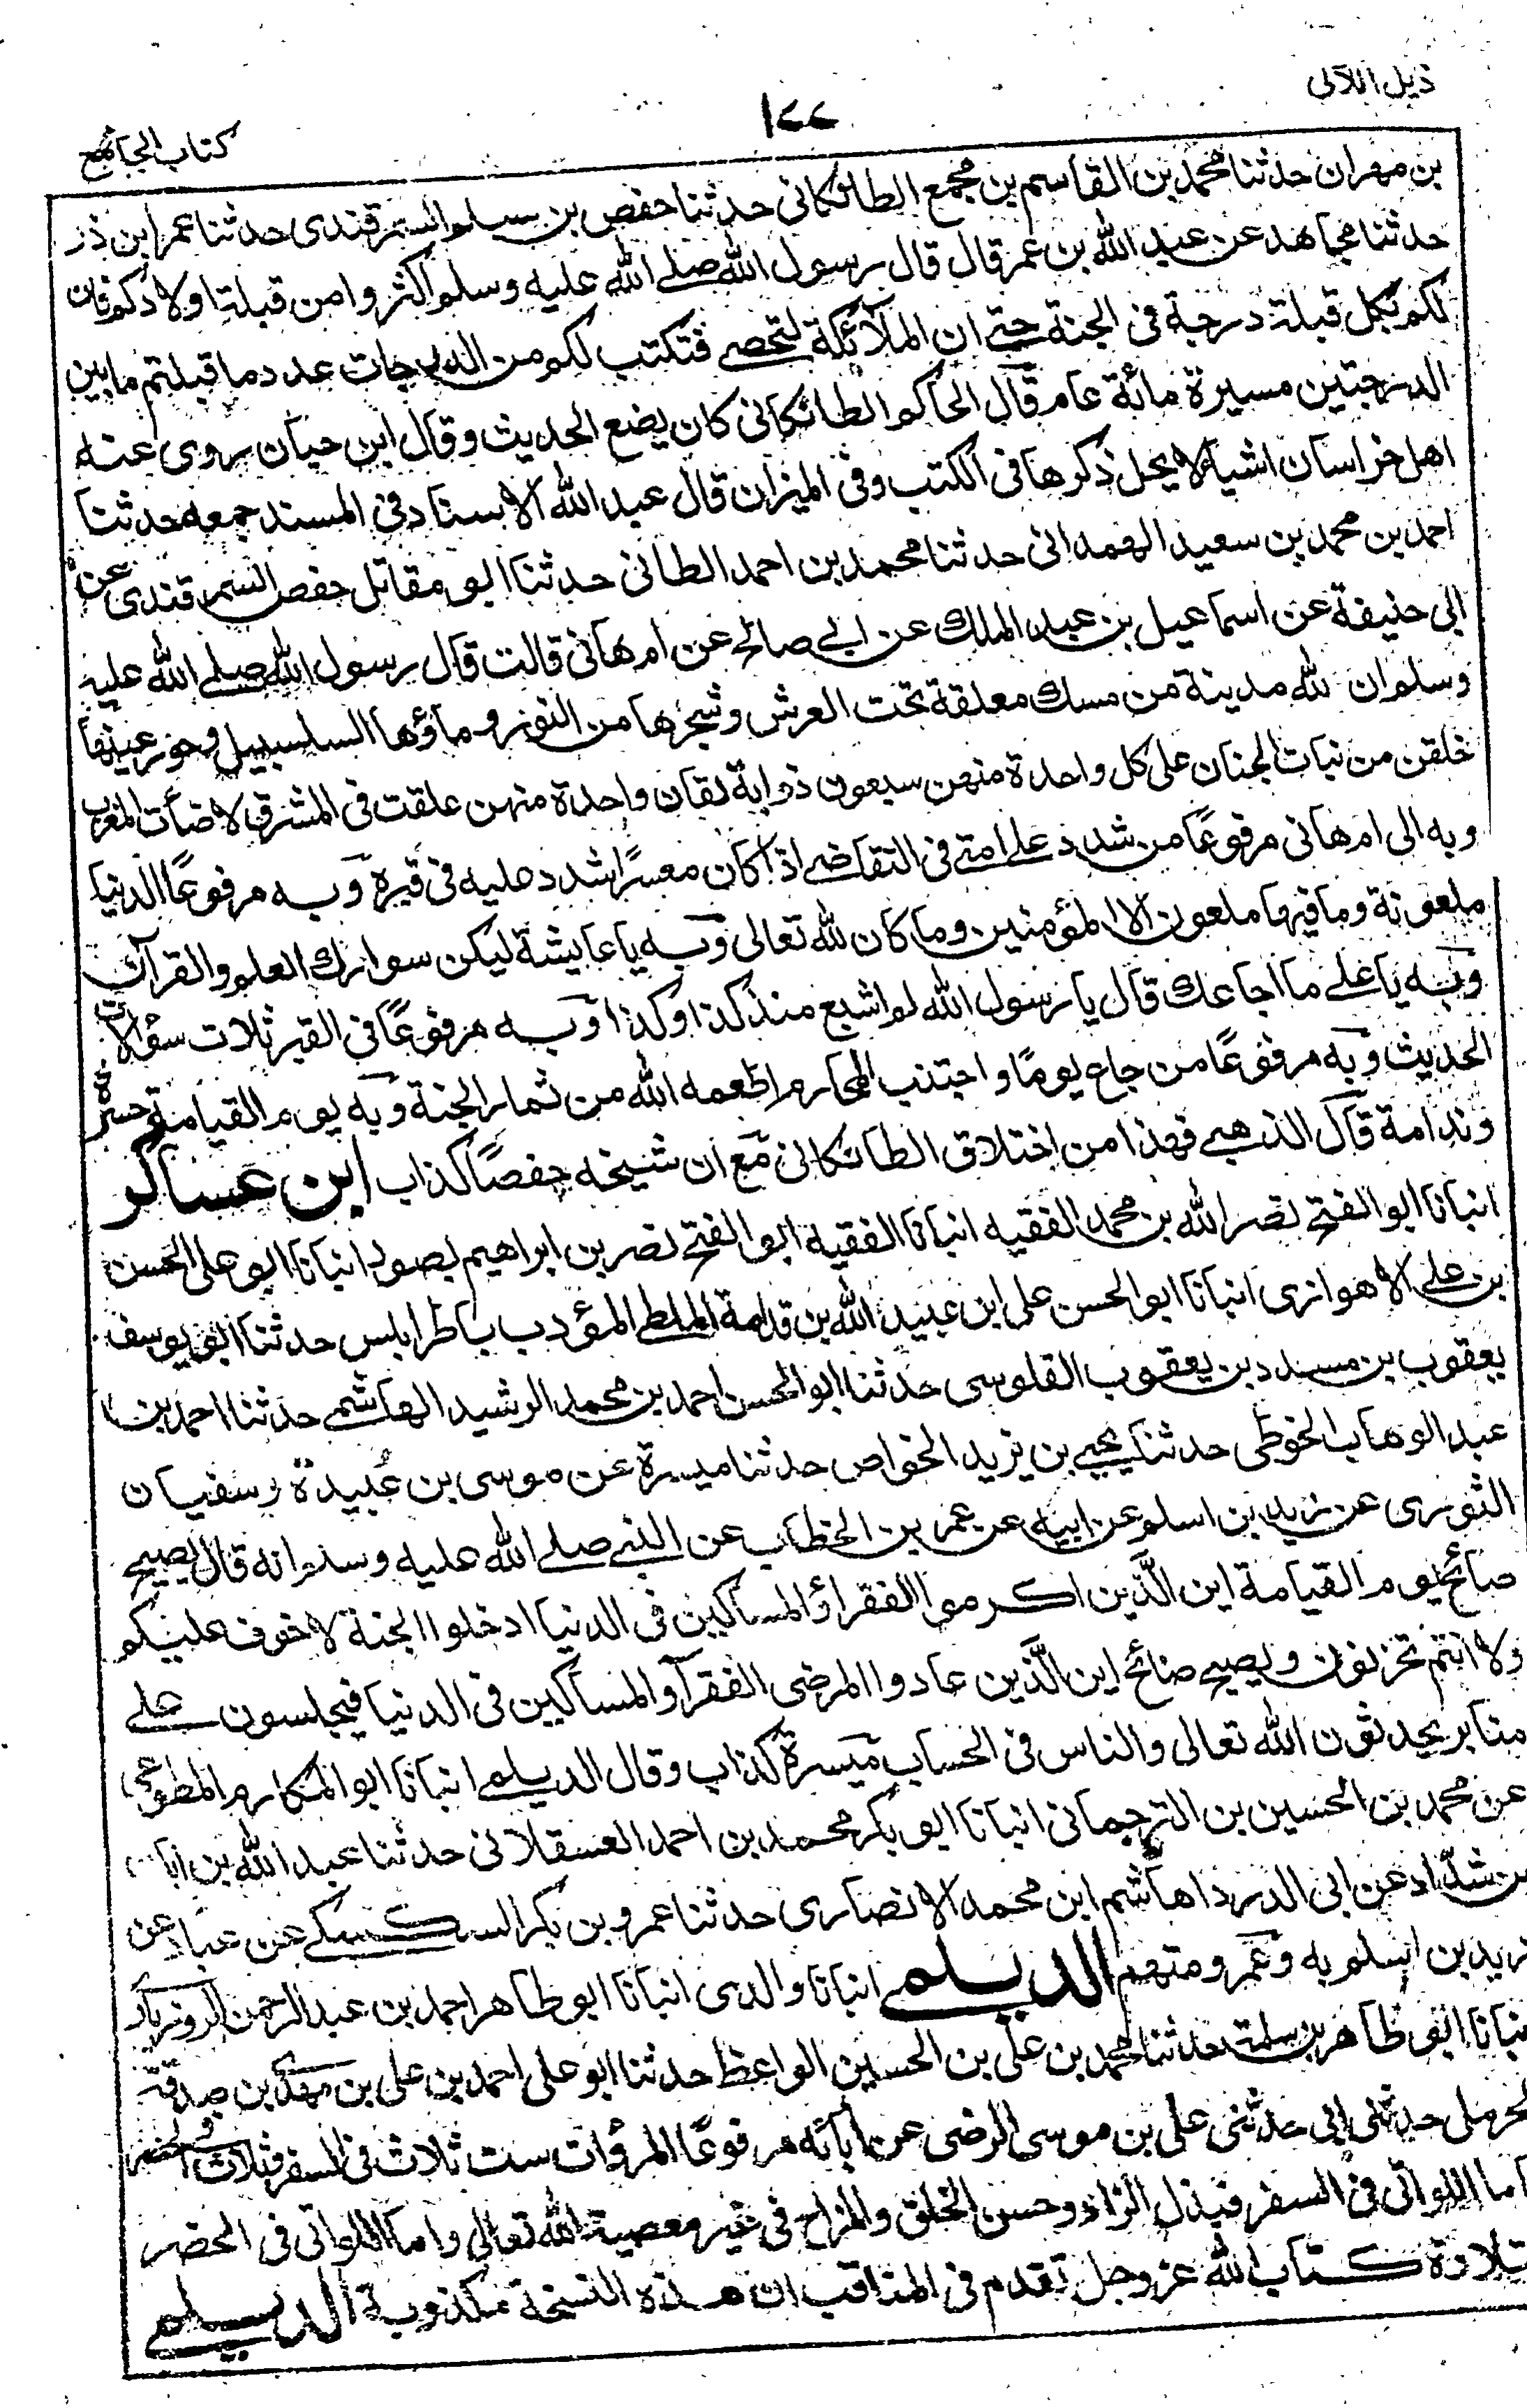 ذيل اللآلى
١٧٧
كتاب الجنائز
بن مهران حدثنا محمد بن القاسم بن مجمع الطائكانى حدثنا حفص بن سلم السمرقندى حدثنا عمر ابن ذر
حدثنا مجاهد عن عبد الله بن عمر قال قال رسول الله صلے الله عليه وسلم اكثروا من قبلة اولادكم فان
لكم بكل قبلة درجة فى الجنة حتے ان الملائكة لتحصے فتكتب لكم من الدرجات عدد ما قبلتم ما بين
الدرجتين مسيرة مائة عام قال الحاكم الطائكانى كان يضع الحديث وقال ابن حبان روى عنه
اهل خراسان اشياء لا يحل ذكرها فى الكتب وفى الميزان قال عبد الله الاستاد فى المسند جمعه حدثنا
احمد بن محمد بن سعيد الهمدانى حدثنا محمد بن احمد الطانى حدثنا ابو مقاتل حفص السمرقندى عن
ابى حنيفة عن اسماعيل بن عبد الملك عن ابے صالح عن ام هانى قالت قال رسول الله صلے الله عليه
وسلم ان لله مدينة من مسك معلقة تحت العرش وشجرها من النور وماؤها السلسبيل وحور عينها
خلقن من نبات الجنان على كل واحدة منهن سبعون ذوابة لقان واحدة منهن علقت فى المشرق لاضأت المغرب
وبه الى ام هانى مرفوعًا من شدد علے امتے فى التقاضے اذا كان معسرًا شدد عليه فى قبره وبه مرفوعًا الدنيا
ملعونة وما فيها ملعون الا المؤمنين وما كان لله تعالى وبه يا عايشة ليكن سوارك العلم والقرآن
وبه يا علے ما اجاعك قال يا رسول الله لم اشبع منذ كذا وكذا وبه مرفوعًا فى القبر ثلاث سؤالات
الحديث وبه مرفوعًا من جاع يومًا واجتنب المحارم اطعمه الله من ثمار الجنة وبه يوم القيامة حسرة
وندامة قال الذهبے فهذا من اختلاق الطائكانى مع ان شيخه حفصًا كذاب ابن عساكر
انبانا ابو الفتح نصر الله بن محمد الفقيه انبانا الفقيه ابو الفتح نصر بن ابراهيم بصور انبانا ابو على الحسن
بن علے الاهوازى انبانا ابو الحسن على ابن عبيد الله بن قدامة الملطے المؤدب باطرابلس حدثنا ابو يوسف
يعقوب بن مسدد بن يعقوب القلوسى حدثنا ابو الحسن احمد بن محمد الرشيد الهاشمے حدثنا احمد بن
عبد الوهاب الخوطى حدثنا يحيے بن يزيد الخواص حدثنا ميسرة عن موسى بن عُبيدة وسفيان
الثورى عن زيد بن اسلم عن ابيه عن عمر بن الخطاب عن النبے صلے الله عليه وسلم انه قال يصيح
صائح يوم القيامة اين الذين اكرموا الفقراء والمساكين فى الدنيا ادخلوا الجنة لا خوف عليكم
ولا انتم تحزنون ويصيح صائح اين الذين عادوا المرضى الفقرآء والمساكين فى الدنيا فيجلسون علے
منابر يحدثون الله تعالى والناس فى الحساب ميسرة كذاب وقال الديلمے انبانا ابو المكارم المطوعى
عن محمد بن الحسين بن الترجمانى انبانا ابو بكر محمد بن احمد العسقلانى حدثنا عبد الله بن ابان
بن شدّاد عن ابى الدرداء هاشم ابن محمد الانصارى حدثنا عمرو بن بكر السكسكے عن عباد عن
زيد بن اسلم به وعمرو متهم الديلمے انبانا والدى انبانا ابو طاهر احمد بن عبد الرحمن
انبانا ابو طاهر بن سلمة حدثنا محمد بن على بن الحسين الواعظ حدثنا ابو على احمد بن على بن مهدى بن صدقة
حدثنى ابى حدثنى على بن موسى الرضى عن آبائه مرفوعًا المروءات ست ثلاث فى السفر وثلاث فى الحضر
اما اللواتى فى السفر فبذل الزاد وحسن الخلق والمزاح فى غير معصية الله تعالى واما اللواتى فى الحضر
تلاوة كتاب الله عز وجل تقدم فى المناقب ان هذه النسخة مكذوبة الديلمے